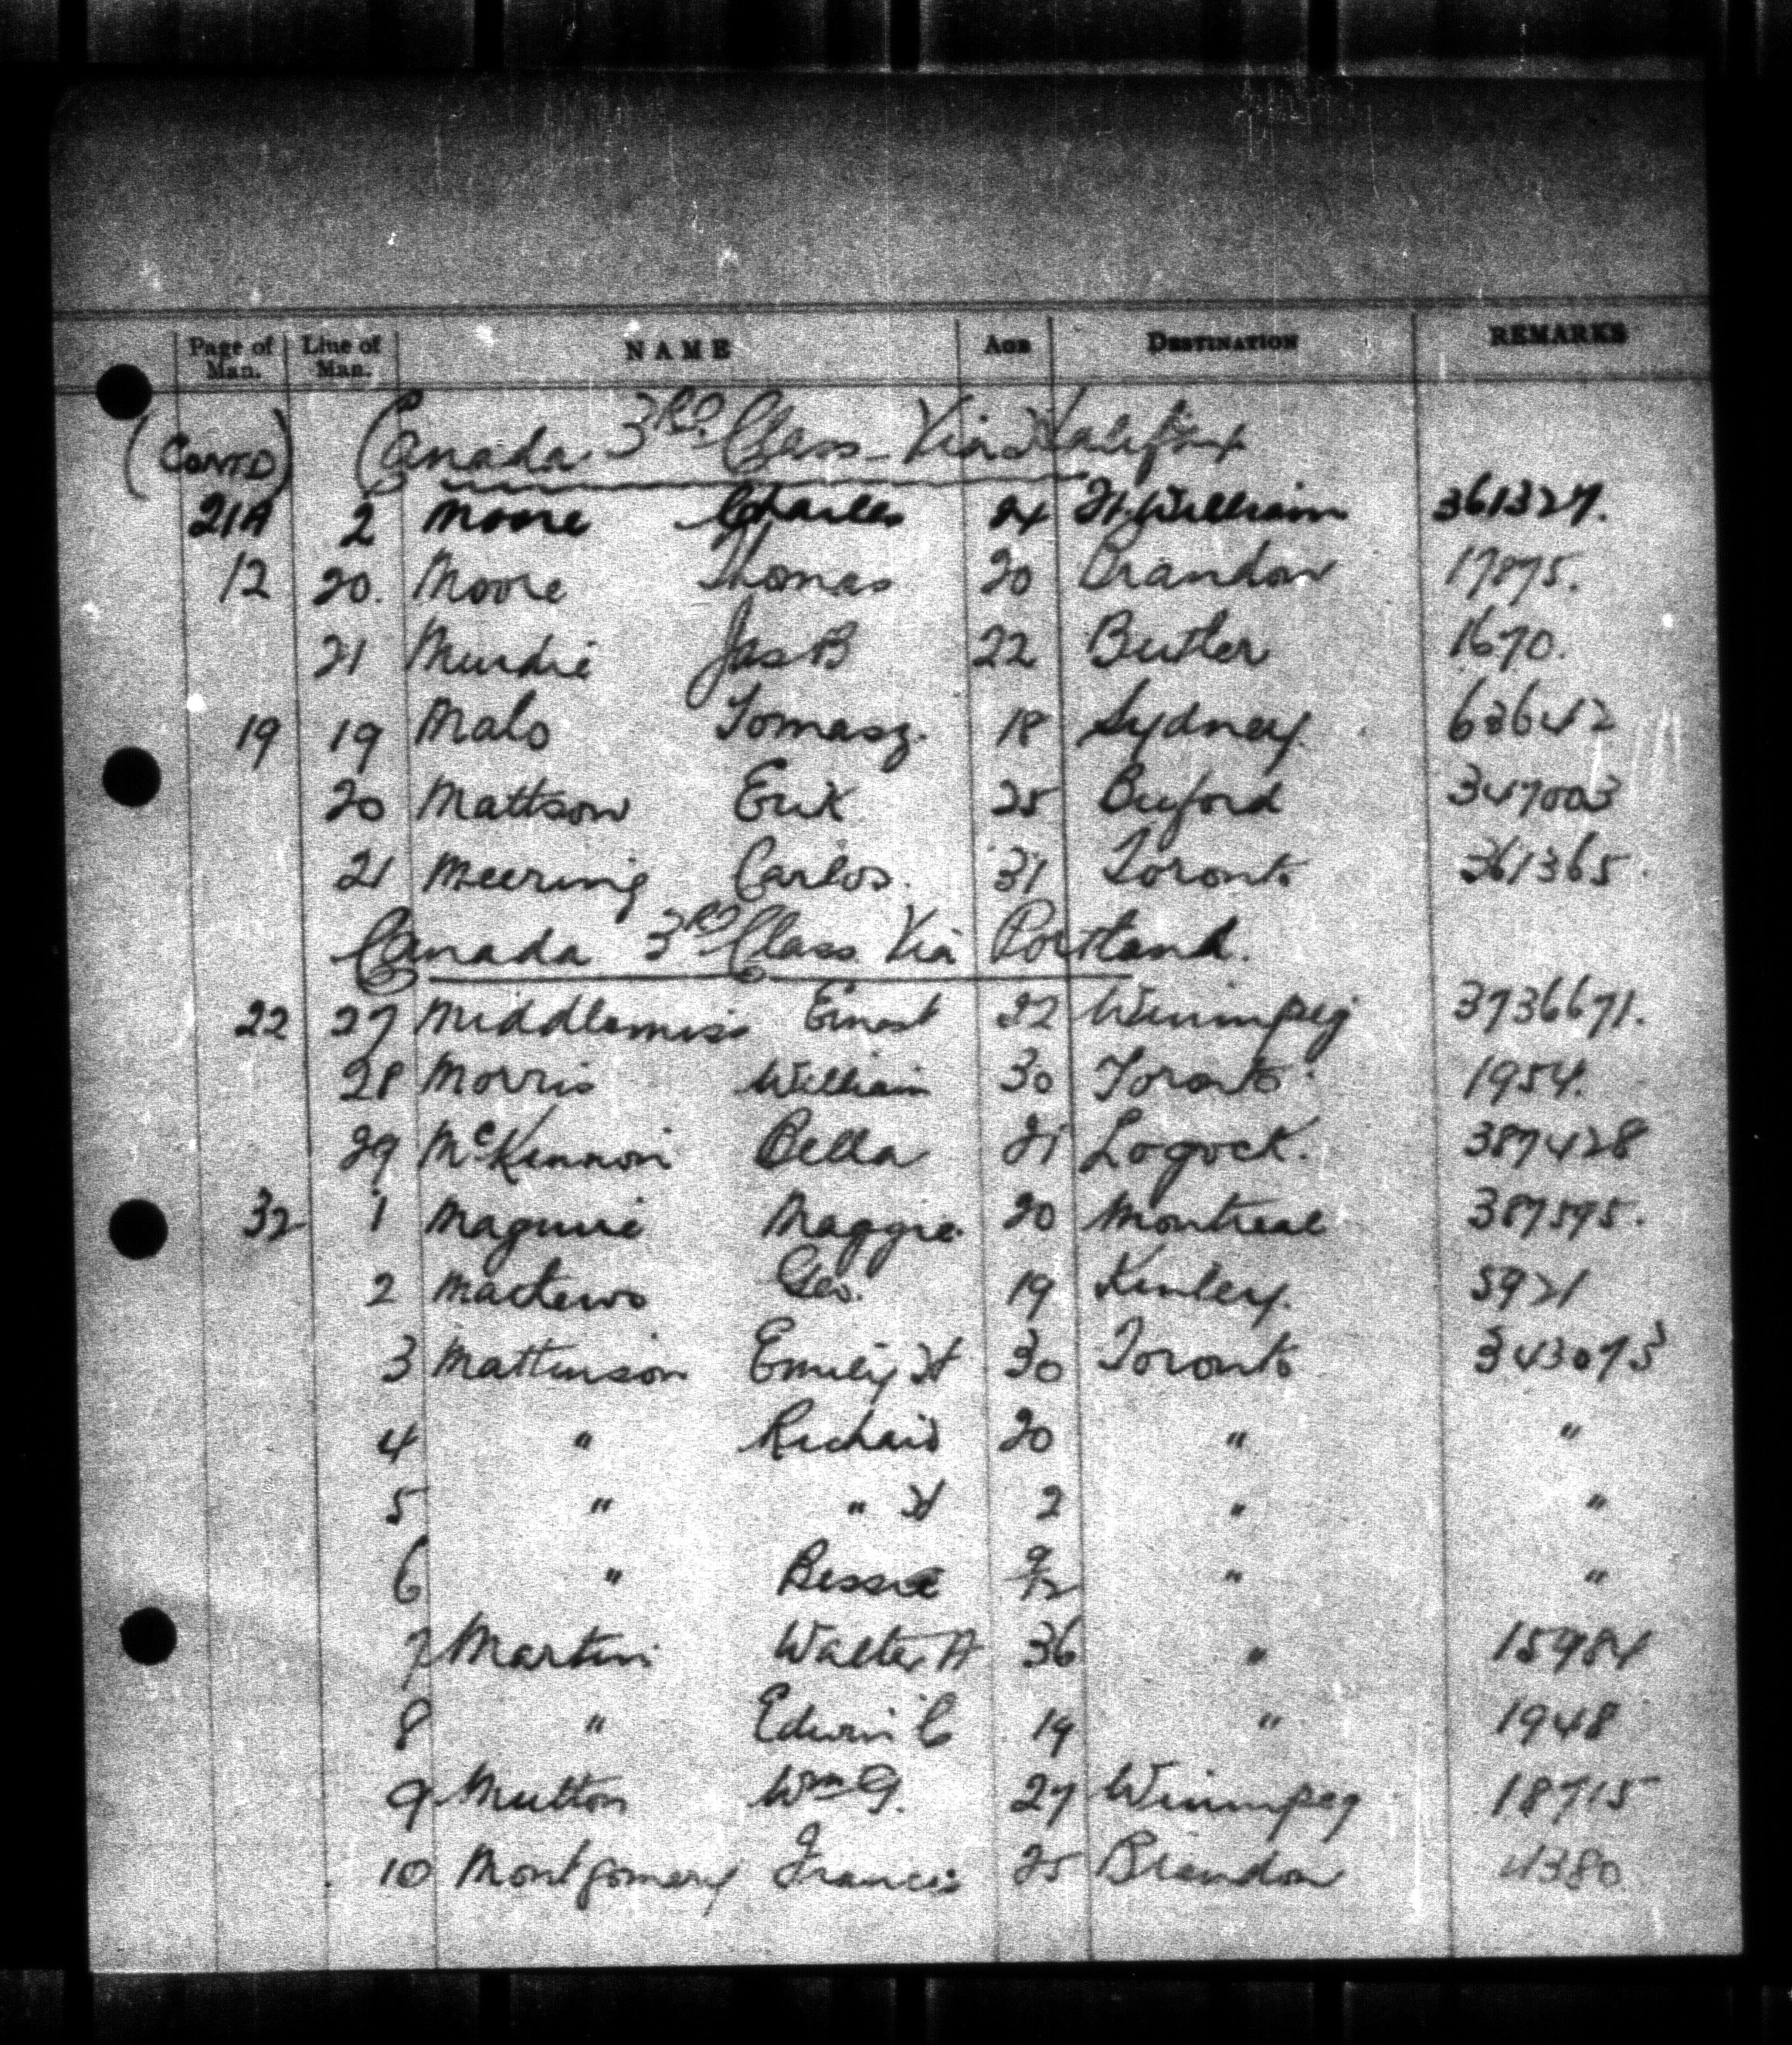 Page of Man. Line of Man. NAME AGE DESTINATION REMARKS
(CONTD) Canada 3RD Class - Via Halifax
21A 2 Moore Charles 24 Ft. William 361327.
12 20. Moore Thomas 20 Brandon 17875.
21 Murdie Jas B 22 Butler 1670.
19 19 Malo Tomasz. 18 Sydney. 63642
20 Mattson Erik 25 Buford 347003
21 Meering Carlos. 31 Toronto 361365.
Canada 3RD Class Via Portland.
22 27 Middlemiss Ernest 22 Winnipeg 3736671.
28 Morris William 30 Toronto 1954.
29 McKinnon Bella 21 Logock. 387428
32 1 Maguire Maggie. 20 Montreal 387595.
2 Mathews Geo. 19 Kinley. 5921
3 Mattinson Emily H 30 Toronto 343073
4 " Richard 20 " "
5 " " H 2 " "
6 " Bessie 9/12 " "
7 Martin Walter A 36 " 15984
8 " Edwin C 19 " 1948
9 Mutton Wm G. 27 Winnipeg 18715
10 Montgomery Francis 25 Brandon 4380